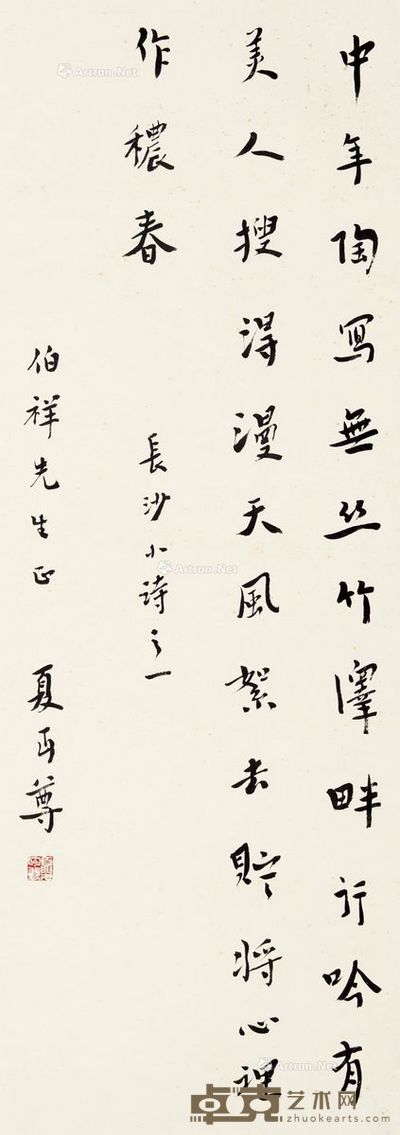 中年陶寫無丝竹澤畔行吟有
美人搜得漫天風絮去貯將心裡
作穠春
長沙小詩之一
伯祥先生正
夏丏尊
Artron.Net
Artron.Net
卓克艺术网
zhuokearts.com